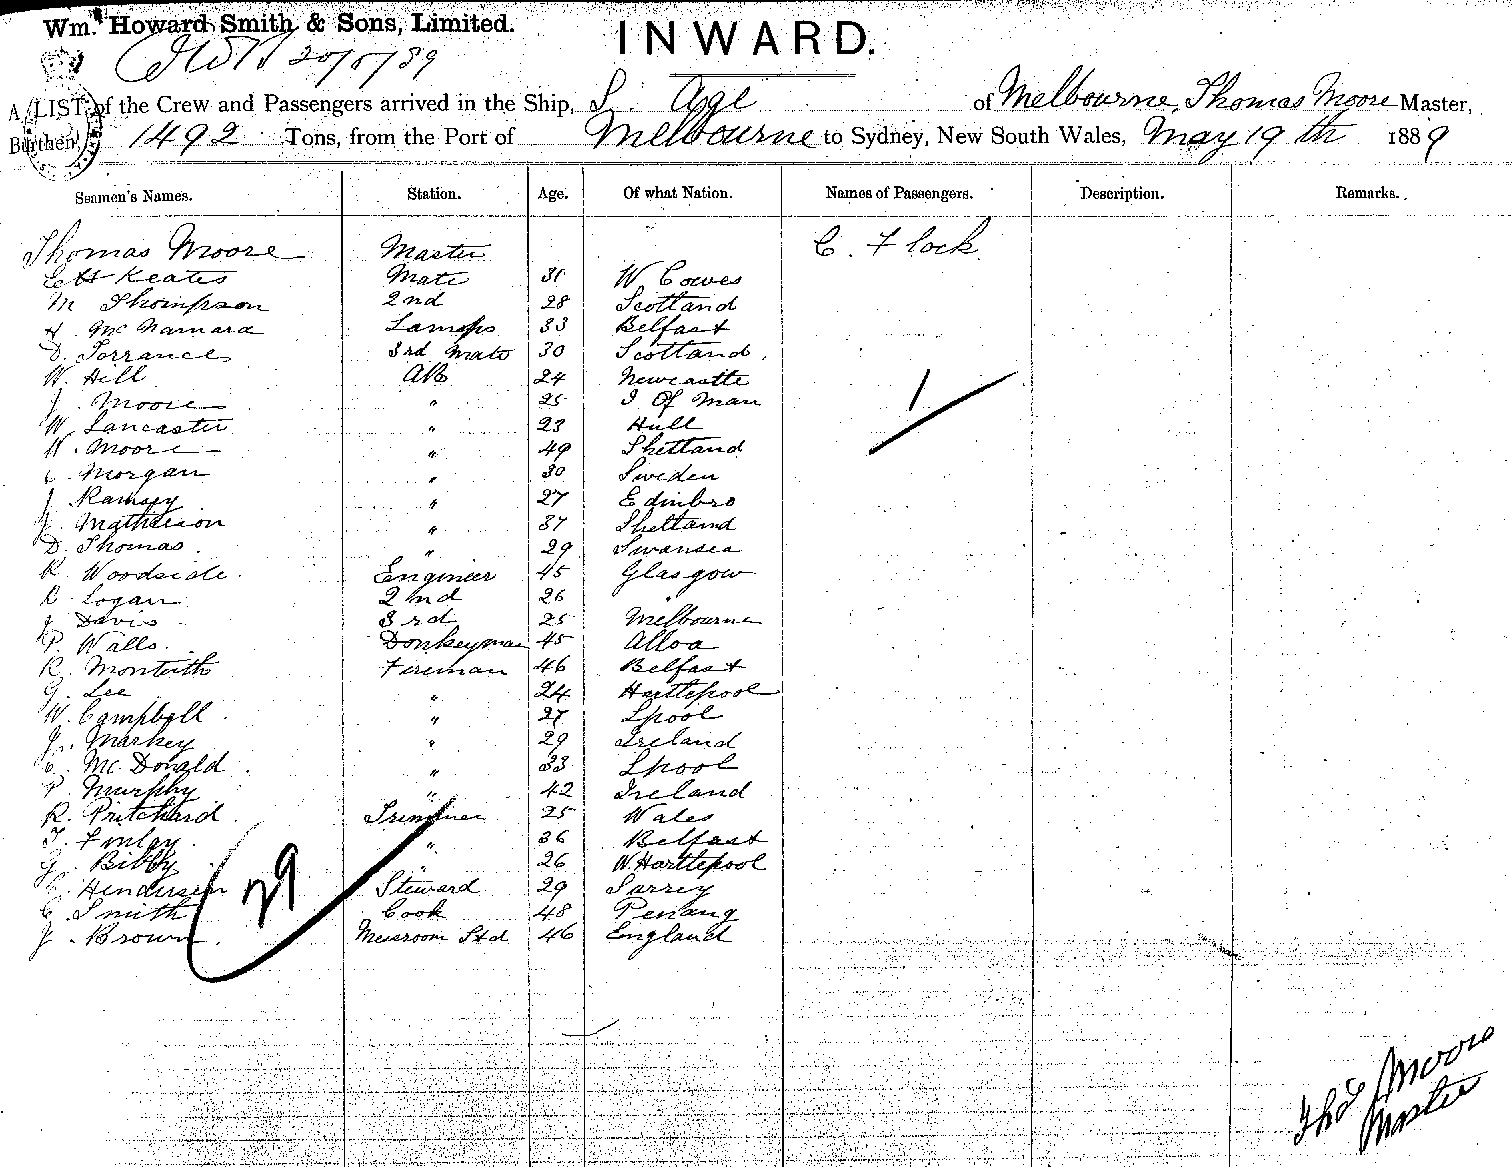 Wm. Howard Smith & Sons, Limited.
INWARD.
20/5/89
A LIST of the Crew and Passengers arrived in the Ship, S. Age of Melbourne, Thomas Moore Master,
Burthen 1492 Tons, from the Port of Melbourne to Sydney, New South Wales, May 19th 1889
Seamen's Names. Station. Age. Of what Nation. Names of Passengers. Description. Remarks.
Thomas Moore Master C. Flock
C H Keates Mate 31 W Cowes
M Thompson 2nd 28 Scotland
H. McNamara Lamps 33 Belfast
D. Torrance 3rd Mate 30 Scotland.
W. Hill AB 24 Newcastle
J. Moore " 25 I Of Man
W. Lancaster " 23 Hull
W. Moore " 49 Shetland
C. Morgan " 30 Sweden
J. Ramsey " 27 Edinbro
J. Mathieson " 37 Shetland
D. Thomas. " 29 Swansea
R. Woodside. Engineer 45 Glasgow
R. Logan 2nd 26 "
J. Davis 3rd 25 Melbourne
P. Walls. Donkeyman 45 Alloa
R. Monteith Fireman 46 Belfast
G. Lee " 24 Hartlepool
W. Campbell " 27 Lpool
J. Markey " 29 Ireland
C. McDonald " 33 Lpool
P. Murphy " 42 Ireland
R. Pritchard Trimmer 25 Wales
T. Finlay " 36 Belfast
G. Bibby " 26 W. Hartlepool
C. Henderson Steward 29 Surrey
C. Smith Cook 48 Penang
J. Brown. Messroom Std 46 England
1
29
Thos Moore
Master